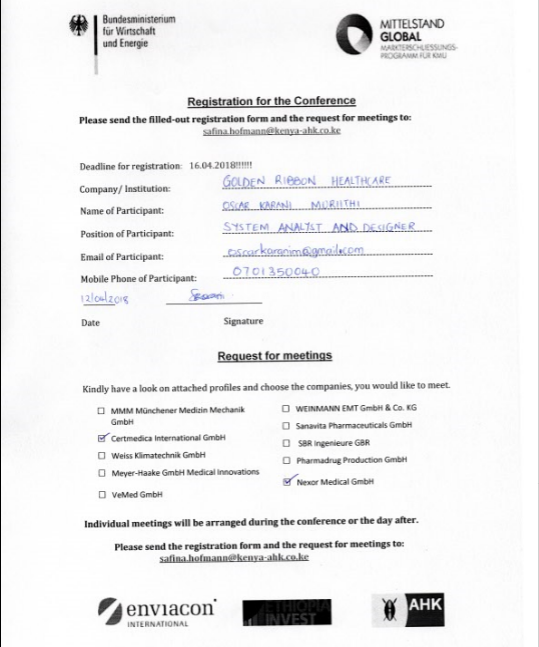 Bundesministerium
für Wirtschaft
und Energie
MITTELSTAND
GLOBAL
MARKTERSCHLIESSUNGS-
PROGRAMM FÜR KMU
Registration for the Conference
Please send the filled-out registration form and the request for meetings to:
safina.hofmann@kenya-ahk.co.ke
Deadline for registration: 16.04.2018!!!!!!
Company/ Institution: GOLDEN RIBBON HEALTHCARE
Name of Participant: OSCAR KARANI MURIITHI
Position of Participant: SYSTEM ANALYST AND DESIGNER
Email of Participant: oscarkaranim@gmail.com
Mobile Phone of Participant: 0701350040
12/04/2018
Date Signature
Request for meetings
Kindly have a look on attached profiles and choose the companies, you would like to meet.
MMM Münchener Medizin Mechanik
GmbH
Certmedica International GmbH
Weiss Klimatechnik GmbH
Meyer-Haake GmbH Medical Innovations
VeMed GmbH
WEINMANN EMT GmbH & Co. KG
Sanavita Pharmaceuticals GmbH
SBR Ingenieure GBR
Pharmadrug Production GmbH
Nexor Medical GmbH
Individual meetings will be arranged during the conference or the day after.
Please send the registration form and the request for meetings to:
safina.hofmann@kenya-ahk.co.ke
enviacon
INTERNATIONAL
ETHIOPIA
INVEST
AHK